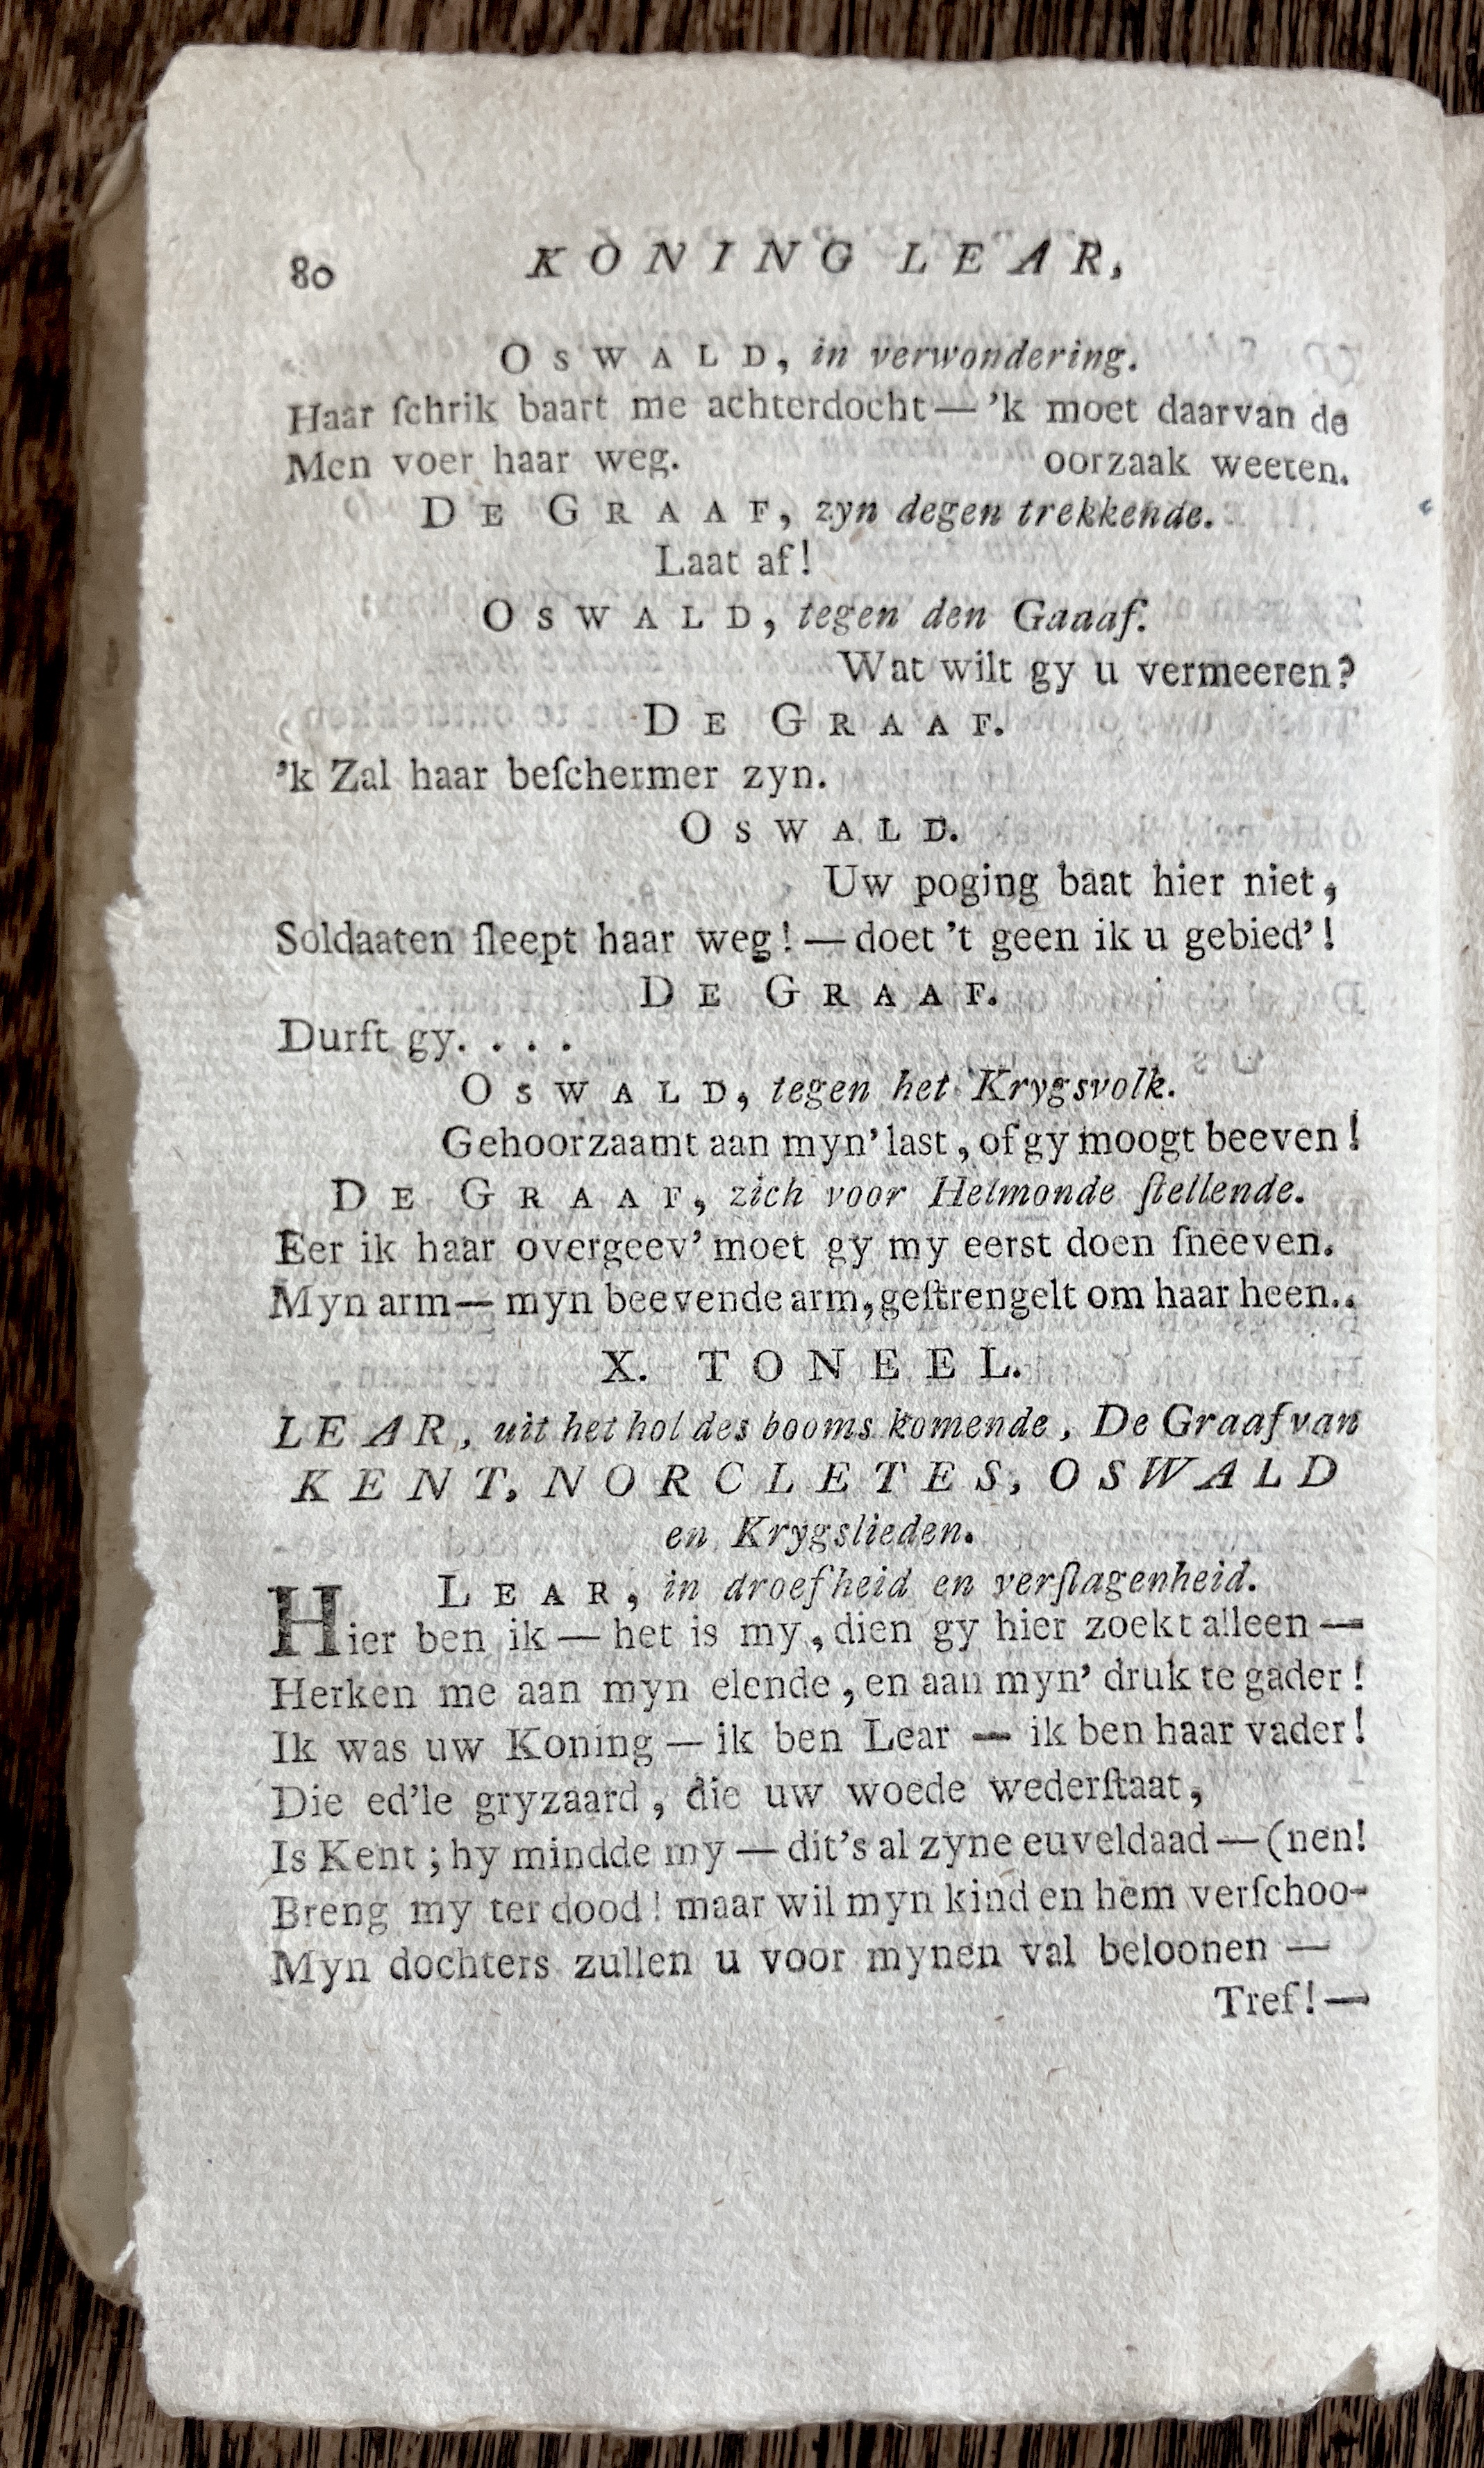 80 KONING LEAR,
OSWALD, in verwondering.
Haar ſchrik baart me achterdocht — 'k moet daarvan de
Men voer haar weg. oorzaak weeten.
DE GRAAF, zyn degen trekkende.
Laat af!
OSWALD, tegen den Gaaaf.
Wat wilt gy u vermeeren?
DE GRAAF.
'k Zal haar beſchermer zyn.
OSWALD.
Uw poging baat hier niet,
Soldaaten ſleept haar weg! — doet 't geen ik u gebied'!
DE GRAAF.
Durſt gy. . . .
OSWALD, tegen het Krygsvolk.
Gehoorzaamt aan myn' last, of gy moogt beeven!
DE GRAAF, zich voor Helmonde ſtellende.
Eer ik haar overgeev' moet gy my eerst doen ſneeven.
Myn arm — myn beevende arm, geſtrengelt om haar heen..
X. TONEEL.
LEAR, uit het hol des booms komende, De Graaf van
KENT, NORCLETES, OSWALD
en Krygslieden.
LEAR, in droefheid en verſlagenheid.
Hier ben ik — het is my, dien gy hier zoekt alleen —
Herken me aan myn elende, en aan myn' druk te gader!
Ik was uw Koning — ik ben Lear — ik ben haar vader!
Die ed'le gryzaard, die uw woede wederſtaat,
Is Kent; hy mindde my — dit's al zyne euveldaad — (nen!
Breng my ter dood! maar wil myn kind en hem verſchoo-
Myn dochters zullen u voor mynen val beloonen —
Tref! —